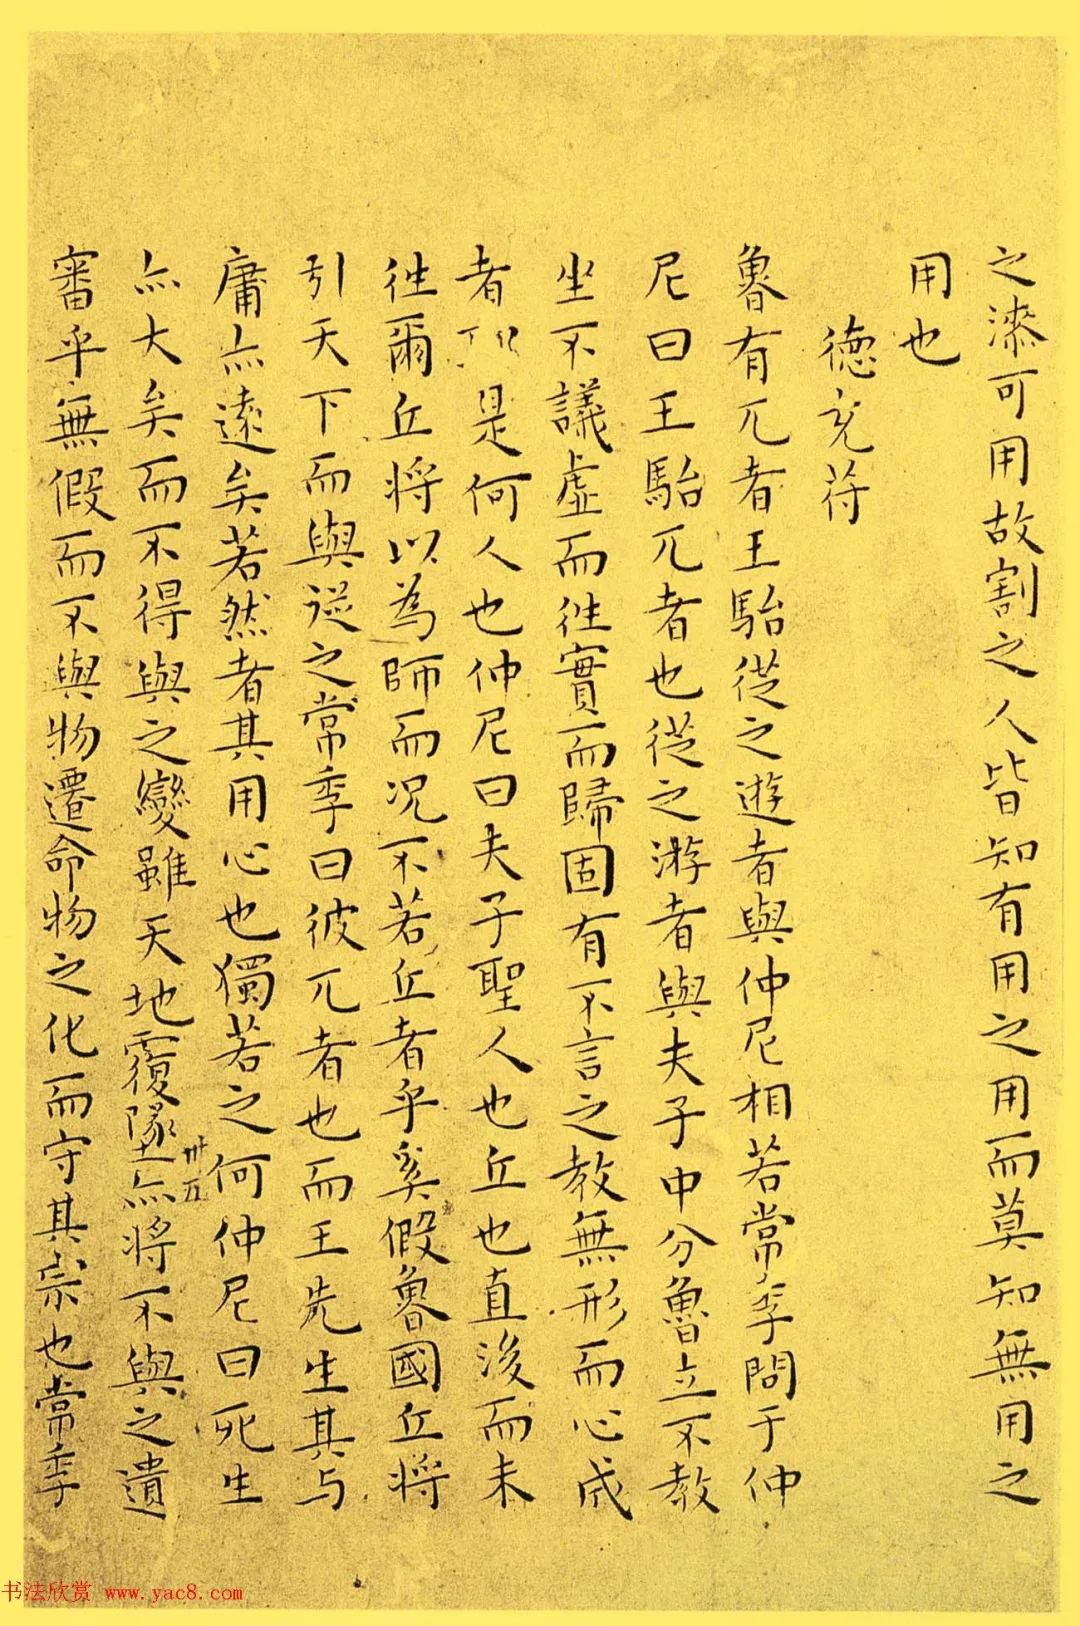 之漆可用故割之人皆知有用之用而莫知無用之
用也
德充符
魯有兀者王駘從之遊者與仲尼相若常季問于仲
尼曰王駘兀者也從之游者與夫子中分魯立不教
坐不議虛而往實而歸固有不言之教無形而心成
者是何人也仲尼曰夫子聖人也丘也直後而未
往爾丘将以為師而况不若丘者乎奚假魯國丘将
引天下而與從之常季曰彼兀者也而王先生其与
庸亦遠矣若然者其用心也獨若之何仲尼曰死生
亦大矣而不得與之變雖天地覆墜亦将不與之遺
卅五
審乎無假而不與物遷命物之化而守其宗也常季
书法欣赏 www.yac8.com